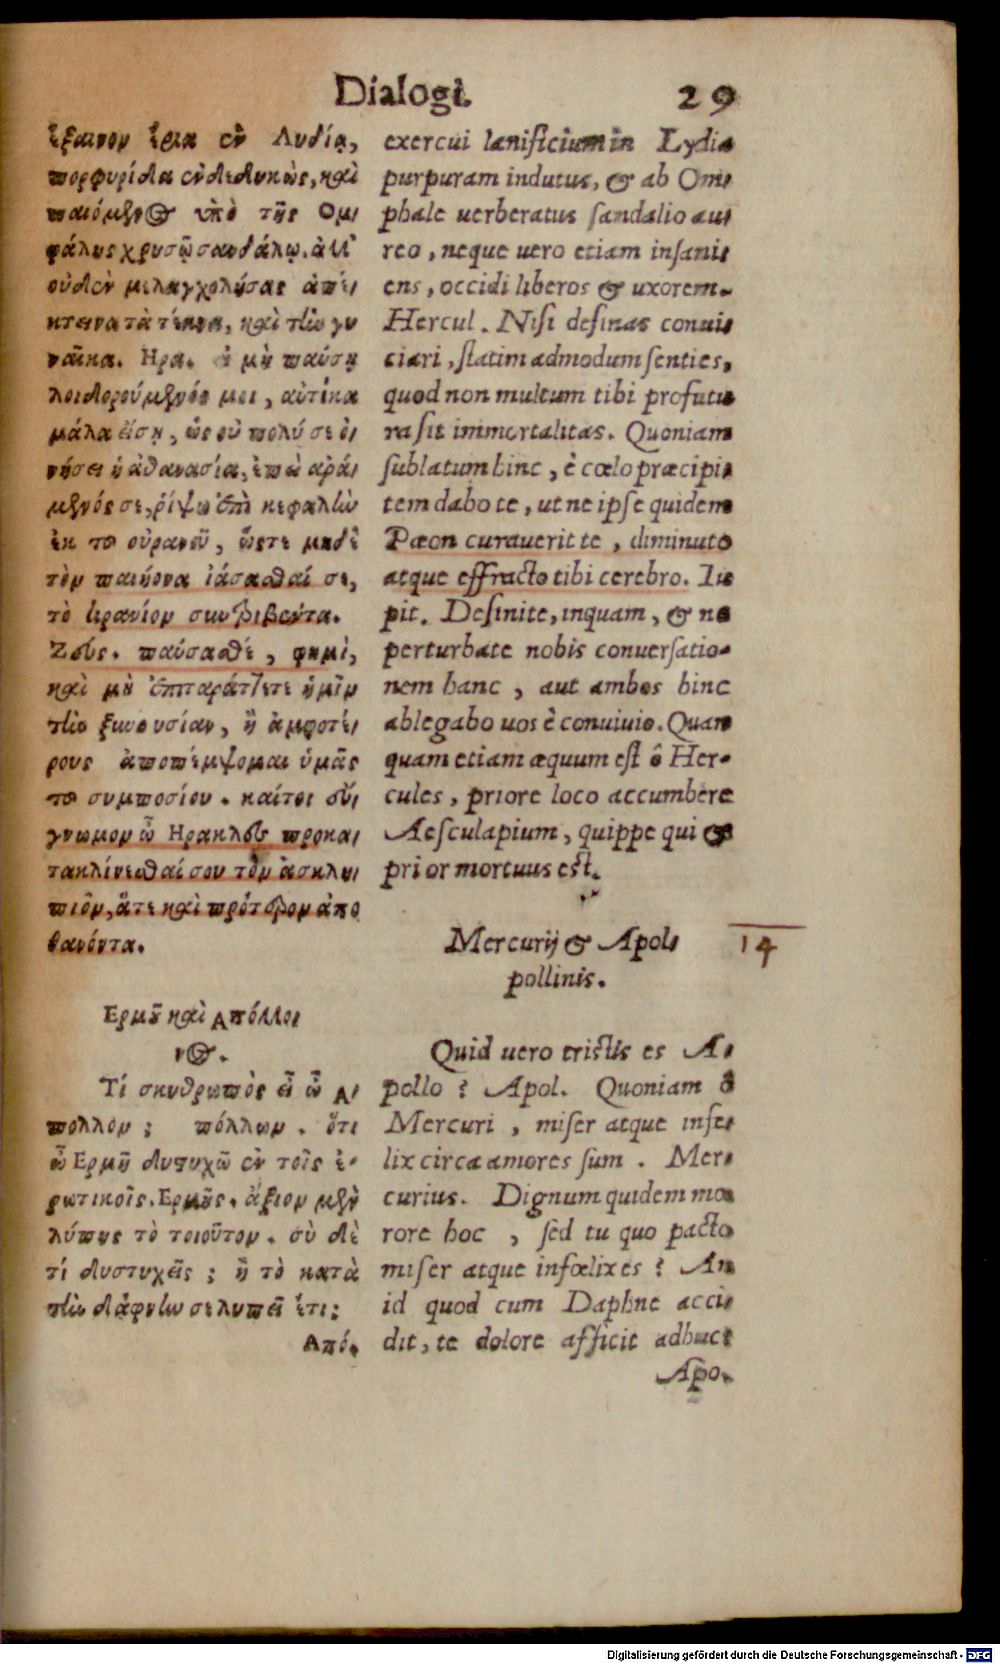 Dialogi. 29
ἔξαινον ἔρια ἐν Λυδίᾳ,
πορφυρίδα ἐνδεδυκὼς, καὶ
παιόμενος ὑπὸ τῆς Ομ-
φάλης χρυσῷ σανδάλῳ. ἀλλ'
οὐδὲν μελαγχολήσας ἀπέ-
κτεινα τὰ τέκνα, καὶ τὴν γυ
ναῖκα. Ηρα. εἰ μὴ παύσῃ
λοιδορούμενός μοι, αὐτίκα
μάλα εἴσῃ, ὡς οὐ πολύ σε ὀ-
νήσει ἡ ἀθανασία, ἐπεὶ ἀρά-
μενός σε, ῥίψω ἐπὶ κεφαλὴν
ἐκ τοῦ οὐρανοῦ, ὥστε μηδὲ
τὸν παιήονα ἰάσασθαί σε,
τὸ κρανίον συντριβέντα.
Ζεύς. παύσασθε, φημὶ,
καὶ μὴ ἐπιταράττετε ἡμῖν
τὴν ξυνουσίαν, ἢ ἀμφοτέ-
ρους ἀποπέμψομαι ὑμᾶς
τοῦ συμποσίου. καίτοι εὔ-
γνωμον ὦ Ηρακλες προκα-
τακλίνεσθαί σου τὸν ἀσκλη-
πιὸν, ἅτε καὶ πρότερον ἀπο
θανόντα.
Ερμοῦ καὶ Απόλλω-
νος.
Τί σκυθρωπὸς εἶ ὦ Α-
πολλον; πόλλων. ὅτι
ὦ Ερμῆ δυστυχῶ ἐν τοῖς ἐ-
ρωτικοῖς. Ερμῆς. ἄξιον μὲν
λύπης τὸ τοιοῦτον. σὺ δὲ
τί δυστυχεῖς; ἢ τὸ κατὰ
τὴν δάφνην σε λυπεῖ ἔτι;
Από.
exercui lanificium in Lydia
purpuram indutus, & ab Om-
phale uerberatus sandalio au-
reo, neque uero etiam insani-
ens, occidi liberos & uxorem.
Hercul. Nisi desinas conui-
ciari, statim admodum senties,
quod non multum tibi profutu
ra sit immortalitas. Quoniam
sublatum hinc, è cœlo præcipi-
tem dabo te, ut ne ipse quidem
Pæon curauerit te, diminuto
atque effracto tibi cerebro. Iu
pit. Desinite, inquam, & ne
perturbate nobis conuersatio-
nem hanc, aut ambos hinc
ablegabo uos è conuiuio. Quan
quam etiam æquum est ô Her-
cules, priore loco accumbere
Aesculapium, quippe qui &
prior mortuus est.
Mercurij & Apol-
pollinis.
14
Quid uero tristis es A-
pollo? Apol. Quoniam ô
Mercuri, miser atque infe-
lix circa amores sum. Mer-
curius. Dignum quidem mœ
rore hoc, sed tu quo pacto
miser atque infœlix es? An
id quod cum Daphne acci-
dit, te dolore afficit adhuc?
Apo.
Digitalisierung gefördert durch die Deutsche Forschungsgemeinschaft - DFG